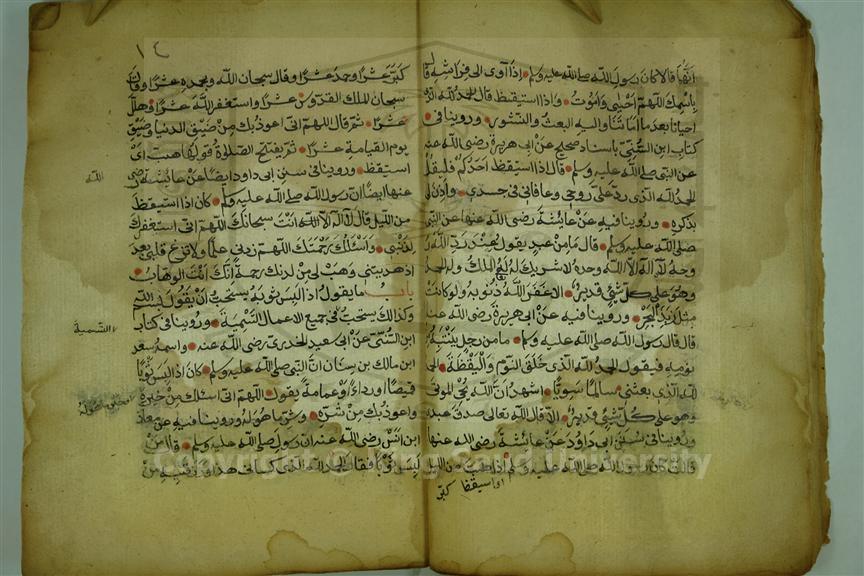 أنهما قالا كان رسول الله صلى الله عليه وسلم إذا أوى إلى فراشه قال
باسمك اللهم أحيى وأموت وإذا استيقظ قال الحمد لله الذي
أحيانا بعد ما أماتنا وإليه البعث والنشور وروينا في
كتاب ابن السني باسناد صحيح عن أبي هريرة رضي الله عنه
عن النبي صلى الله عليه وسلم قال إذا استيقظ أحدكم فليقل
الحمد لله الذي رد علي روحي وعافاني في جسدي وأذن لي
بذكره وروينا فيه عن عائشة رضي الله عنها عن النبي
صلى الله عليه وسلم قال ما من عبد يقول عند رد الله
روحه لا إله إلا الله وحده لا شريك له له الملك وله الحمد
وهو على كل شيء قدير إلا غفر الله ذنوبه ولو كانت
مثل زبد البحر وروينا فيه عن أبي هريرة رضي الله عنه
قال قال رسول الله صلى الله عليه وسلم ما من رجل ينتبه من
نومه فيقول الحمد لله الذي خلق النوم واليقظة الحمد
لله الذي بعثني سالما سويا أشهد أن الله يحيي الموتى
وهو على كل شيء قدير إلا قال الله تعالى صدق عبدي
وروينا في سنن أبي داود عن عائشة رضي الله عنها
قالت كان رسول الله صلى الله عليه وسلم إذا هب من الليل
كبر
١٤
كبر عشرا وحمد عشرا وقال سبحان الله وبحمده عشرا وقال
سبحان الملك القدوس عشرا واستغفر الله عشرا وهلل
عشرا ثم قال اللهم اني أعوذ بك من ضيق الدنيا وضيق
يوم القيامة عشرا ثم يفتتح الصلوة قولها هب أي
استيقظ وروينا في سنن أبي داود أيضا عن عائشة رضي
الله
عنها أيضا ان رسول الله صلى الله عليه وسلم كان اذا استيقظ
من الليل قال لا اله الا الله أنت سبحانك اللهم اني استغفرك
لذنبي وأسئلك رحمتك اللهم زدني علما ولا تزغ قلبي بعد
إذ هديتني وهب لي من لدنك رحمة إنك أنت الوهاب
باب ما يقول اذا لبس ثوبه يستحب أن يقول بسم الله
وكذلك يستحب في جميع الاعمال التسمية وروينا في كتاب
التسمية
ابن السني عن أبي سعيد الخدري رضي الله عنه واسمه سعد
ابن مالك بن سنان ان النبي صلى الله عليه وسلم كان اذا لبس ثوبا
قميصا أو رداء أو عمامة يقول اللهم اني اسئلك من خيره
وأعوذ بك من شره وشر ما هو له وروينا فيه عن معاذ
ابن أنس رضي الله عنه ان رسول صلى الله عليه وسلم قال من
لبس ثوبا فقال الحمد لله الذي كساني هذا ورزقنيه من
Copyright © King Saud University